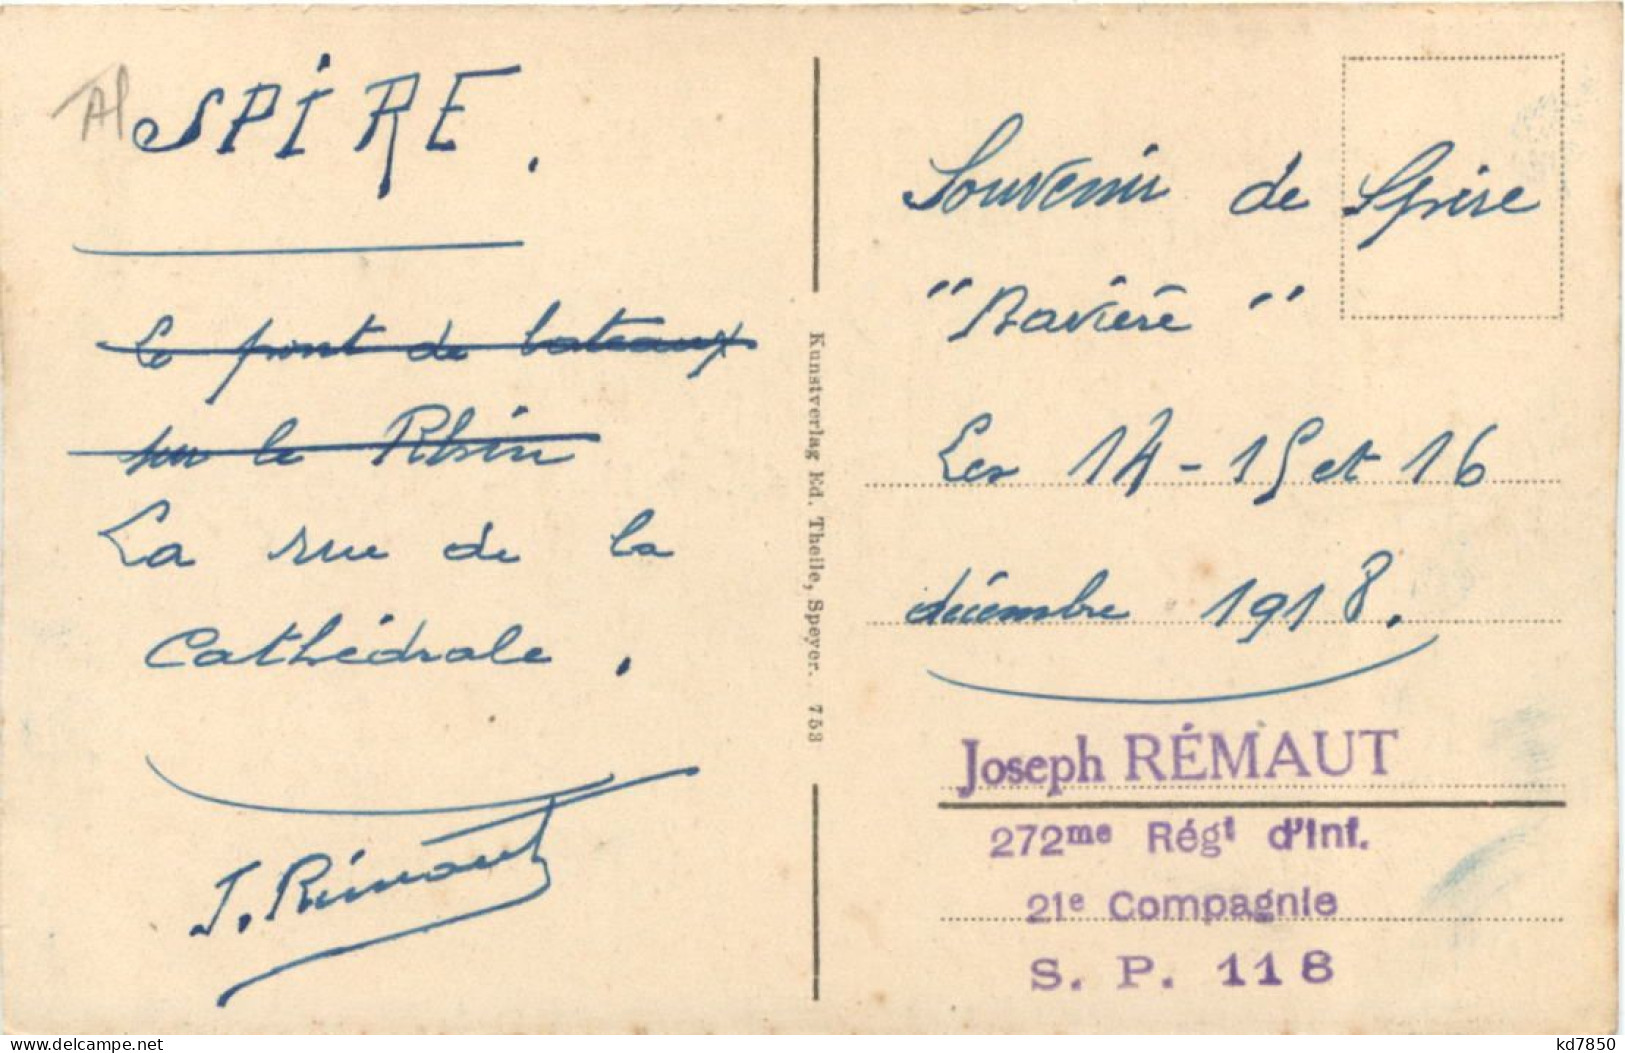 Al
SPIRE.
Le pont de bateaux
sur le Rhin
La rue de la
Cathédrale.
J. Rémaut
Kunstverlag Ed. Theile, Speyer. 753
Souvenir de Spire
"Bavière"
Les 14-15 et 16
décembre 1918.
Joseph RÉMAUT
272me Régt d'Inf.
21e Compagnie
S. P. 118
delcampe.net
kd7850